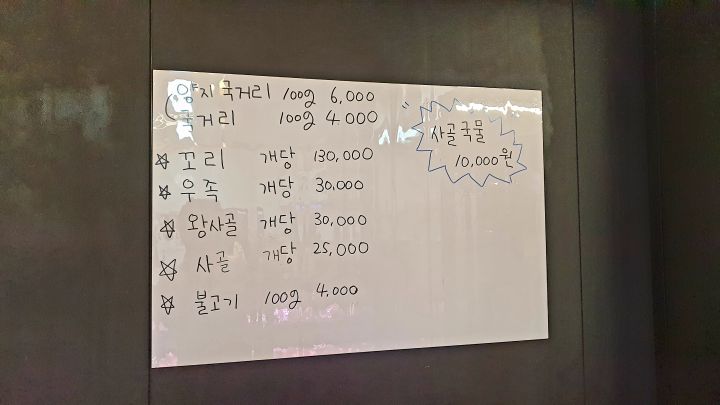 양지 국거리 100g 6,000
국거리 100g 4.000
☆ 꼬리 개당 130,000
☆ 우족 개당 30.000
☆ 왕사골 개당 30,000
☆ 사골 개당 25,000
☆ 불고기 100g 4,000
사골국물
10,000원